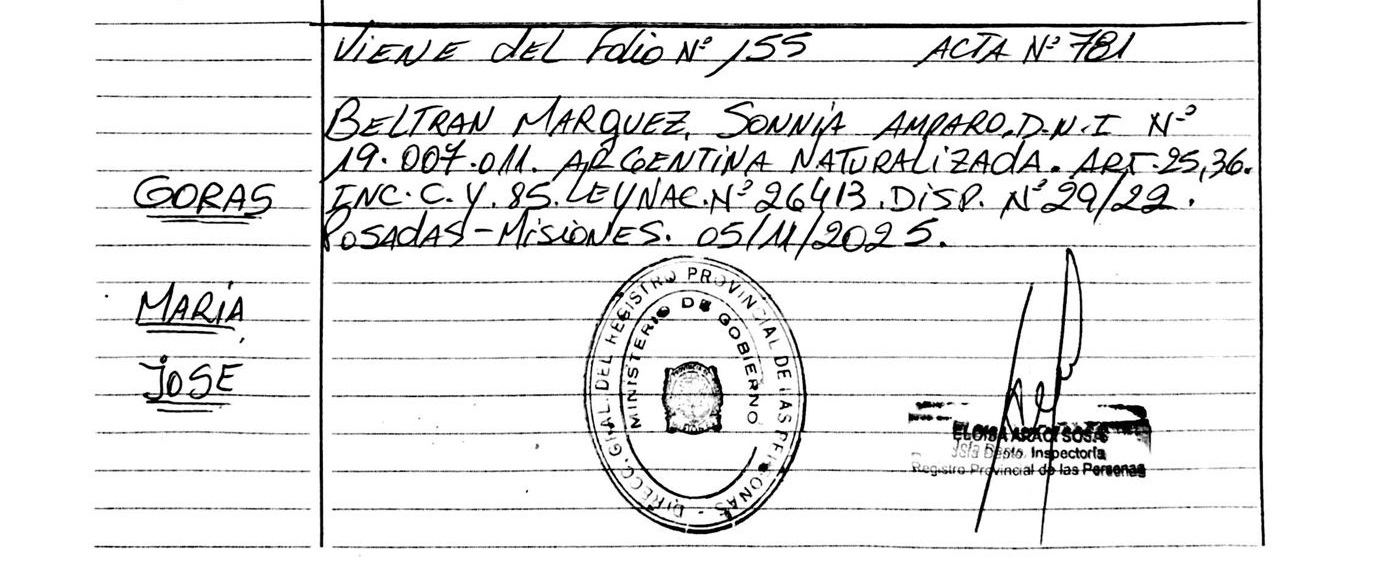 VIENE DEL FOLIO Nº 155 ACTA Nº 781
BELTRAN MARQUEZ, SONNIA AMPARO. D.N.I Nº
19.007.011. ARGENTINA NATURALIZADA. ART. 25, 36.
INC. C. Y. 85. LEY NAC. Nº 26413. DISP. Nº 29/22.
POSADAS - MISIONES. 05/11/2025.
GORAS
MARIA
JOSE
DIRECC. GRAL. DEL REGISTRO PROVINCIAL DE LAS PERSONAS -
MINISTERIO DE GOBIERNO
ELOISA ARACI SOSA
Inspectoría
Registro Provincial de las Personas